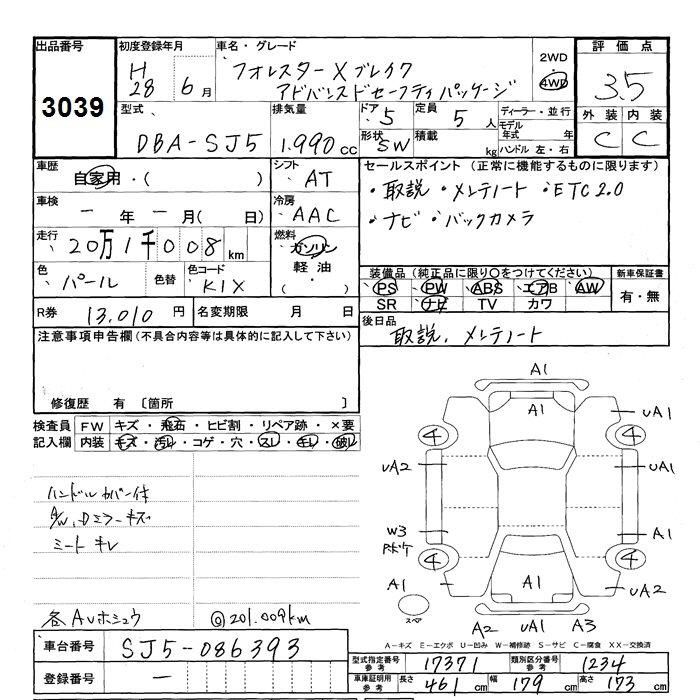 出品番号 初度登録年月 車名・グレード 評価点
3039 H28 6月 フォレスター X ブレイク 2WD
アドバンスドセーフティパッケージ 4WD 3.5
型式 排気量 ドア 定員 ディーラー・並行 外装 内装
DBA-SJ5 1.990cc 5 5人 モデル年式 年 C C
形状 SW 積載 kg ハンドル 左・右
車歴 自家用・( ) シフト AT セールスポイント (正常に機能するものに限ります)
・取説・メンテノート・ETC2.0
車検 ー年ー月( 日) 冷房 AAC ・ナビ・バックカメラ
走行 20万1千008km 燃料 ガソリン
軽油
色 パール 色替 色コード K1X ( ・ )
装備品 (純正品に限り○をつけてください) 新車保証書
PS PW ABS エアB AW 有・無
SR ナビ TV カワ
R券 13.010円 名変期限 月 日
後日品 取説、メンテノート
注意事項申告欄 (不具合内容等は具体的に記入して下さい)
修復歴 有 〔箇所
検査員 FW キズ・飛石・ヒビ割・リペア跡・×要
記入欄 内装 キズ・汚レ・コゲ・穴・スレ・キレ・破レ
ハンドルカバー付
A/W、Dミラーキズ
シートキレ
各AUホシュウ ◎201.009km
A1
A1 UA1
4 4
UA2 UA1
W3 A1
4 4
A1 A1 UA2
スペア
A2 UA1 A3
A-キズ E-エクボ U-凹み W-補修跡 S-サビ C-腐食 XX-交換済
車台番号 SJ5-086393
型式指定番号 参考 17371 類別区分番号 参考 1234
登録番号 ー
車庫証明用 参考 長さ 461cm 幅 179cm 高さ 173cm